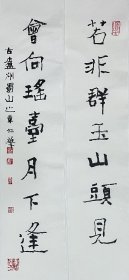 若非群玉山頭見
會向瑤臺月下逢